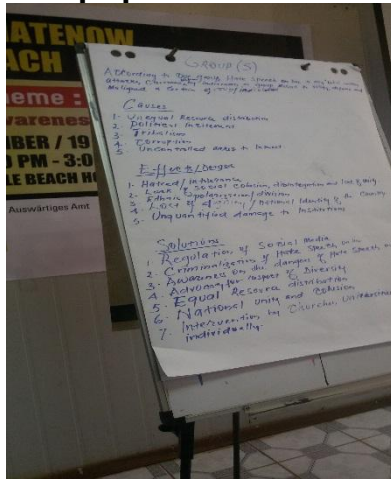 ATENOW
ACH
heme :
warenes
MBER / 19
0 PM - 3:0
LE BEACH H
Auswärtiges Amt
GROUP (5)
According to group Hate Speech on line is any
Causes
1- Unequal Resource distribution
2- Political Incitement
3- Tribalism
4- Corruption
5- Uncontrolled access to Internet
Effects/Danger
1- Hatred/Intolerance
2- Lack of Social Cohesion, disintegration and lack of Unity
3- Ethnic division
4- Lost of dignity/National Identity of the Country
5- Unquantified damage to Institutions
Solutions
1. Regulation of Social Media
2. Criminalization of Hate Speech online
3. Awareness on the dangers of Hate Speech
4. Advocacy for respect of Diversity
5- Equal Resource distribution
6- National Unity and Cohesion
7. Intervention by Churches, Universities
individually.